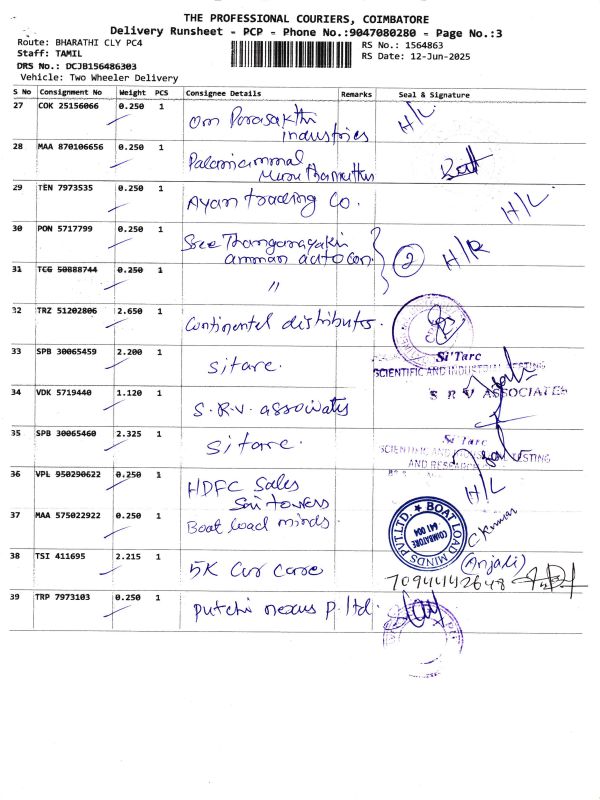 THE PROFESSIONAL COURIERS, COIMBATORE
Delivery Runsheet - PCP - Phone No.:9047080280 - Page No.:3
Route: BHARATHI CLY PC4
Staff: TAMIL
DRS No.: DCJB156486303
Vehicle: Two Wheeler Delivery
RS No.: 1564863
RS Date: 12-Jun-2025
S No Consignment No Weight PCS Consignee Details Remarks Seal & Signature
27 COK 25156066 0.250 1 Om Parasakthi industries H/L
28 MAA 870106656 0.250 1 Palaniammal
29 TEN 7973535 0.250 1 Ayan trading Co. H/L
30 PON 5717799 0.250 1 Sree Thanganayaki amman autocon 2 H/R
31 TCG 50888744 0.250 1 "
32 TRZ 51202806 2.650 1 Continental distributos.
33 SPB 30065459 2.200 1 sitarc.
Si'Tarc
SCIENTIFIC AND INDUSTRIAL TESTING
34 VDK 5719440 1.120 1 S.R.V. associates
S R V ASSOCIATES
35 SPB 30065460 2.325 1 sitarc.
Si'Tarc
SCIENTIFIC AND TESTING
AND RESEARCH
36 VPL 950290622 0.250 1 HDFC Sales Sri towers H/L
37 MAA 575022922 0.250 1 Boat load minds.
BOAT LOAD MINDS PVT.LTD. ★
COIMBATORE
641 004
C Kumar
38 TSI 411695 2.215 1 5K Car Care
(Anjali)
7094442648
39 TRP 7973103 0.250 1 putchi nexus p. ltd.